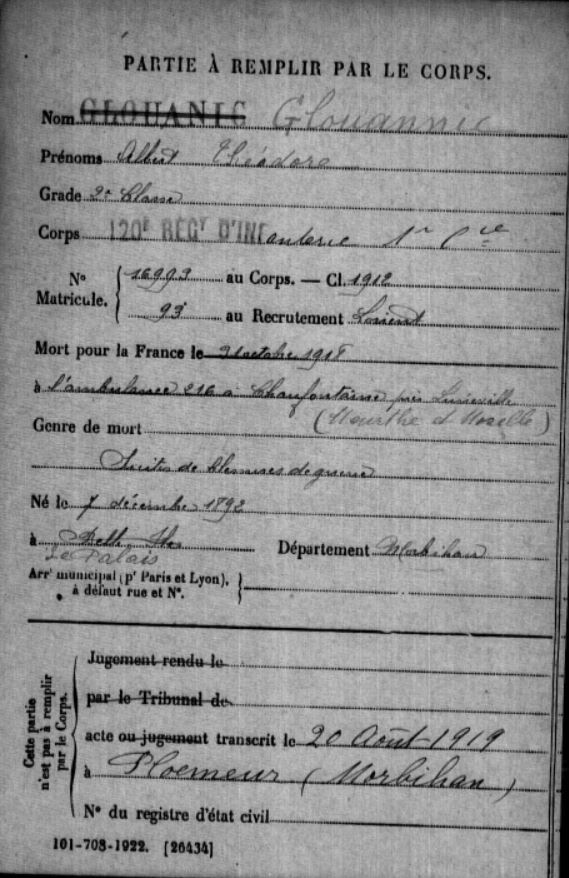 PARTIE À REMPLIR PAR LE CORPS.
Nom GLOUANIC Glouannic
Prénoms Albert Théodore
Grade 2e Classe
Corps 120E REGT D'INFanterie 1re Cie
N° Matricule. 16993 au Corps. — Cl. 1912
93 au Recrutement Lorient
Mort pour la France le 31 octobre 1918
à l'ambulance 216 a Chanfontaine près Luneville
(Meurthe et Moselle)
Genre de mort
Suites de blessures de guerre
Né le 7 décembre 1892
à Belle Ile Département Morbihan
Le Palais
Arrt municipal (pr Paris et Lyon),
à défaut rue et N°.
Cette partie n'est pas à remplir par le Corps.
Jugement rendu le
par le Tribunal de
acte ou jugement transcrit le 20 Août 1919
à Ploemeur (Morbihan)
N° du registre d'état civil
101-708-1922. [26434]